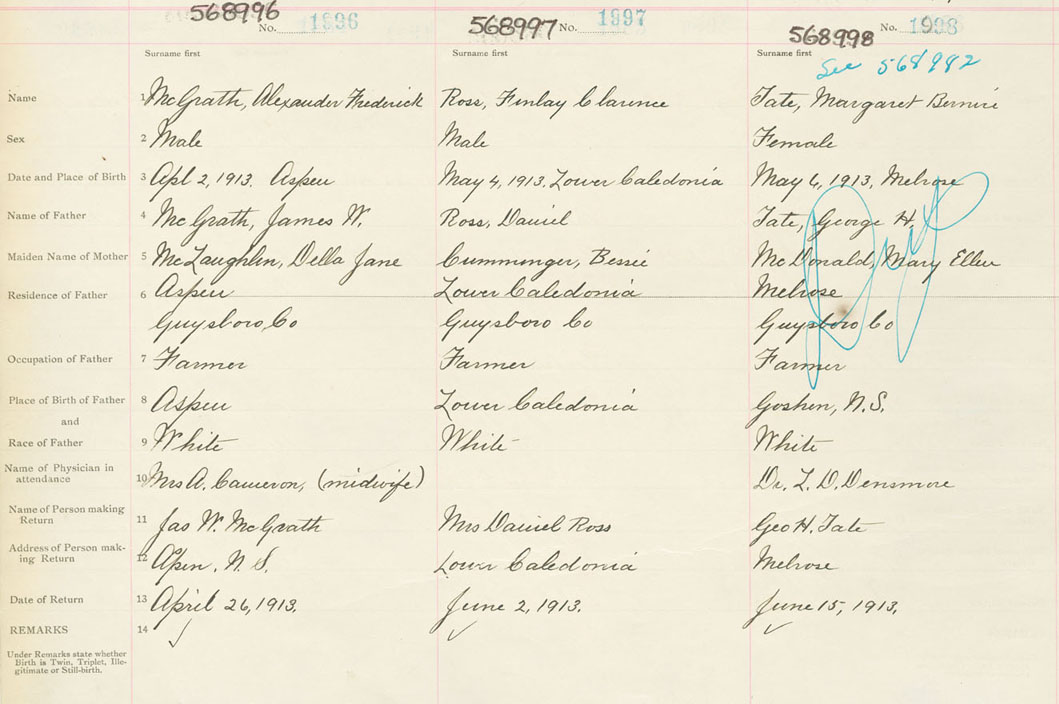 568996 No. 1996 568997 No. 1997 568998 No. 1998
Surname first Surname first Surname first
See 568982
Name 1 McGrath, Alexander Frederick Ross, Finlay Clarence Tate, Margaret
Sex 2 Male Male Female
Date and Place of Birth 3 Apl 2, 1913. Aspen May 4, 1913. Lower Caledonia May 6, 1913, Melrose
Name of Father 4 McGrath, James W. Ross, Daniel Tate, George H.
Maiden Name of Mother 5 McLaughlin, Della Jane Cumminger, Bessie McDonald, Mary Ellen
Residence of Father 6 Aspen Lower Caledonia Melrose
Guysboro, Co Guysboro Co Guysboro Co
Occupation of Father 7 Farmer Farmer Farmer
Place of Birth of Father 8 Aspen Lower Caledonia Goshen, N.S.
and
Race of Father 9 White White White
Name of Physician in
attendance 10 Mrs A. Cameron, (midwife) Dr. L. D. Densmore
Name of Person making
Return 11 Jas W. McGrath Mrs Daniel Ross Geo H. Tate
Address of Person mak-
ing Return 12 Apen, N.S. Lower Caledonia Melrose
Date of Return 13 April 26, 1913. June 2, 1913. June 15, 1913.
REMARKS 14
Under Remarks state whether
Birth is Twin, Triplet, Ille-
gitimate or Still-birth.